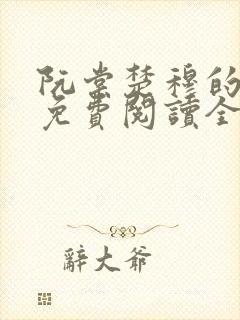 阮棠楚穆的
免費閱讀全
辭大爺